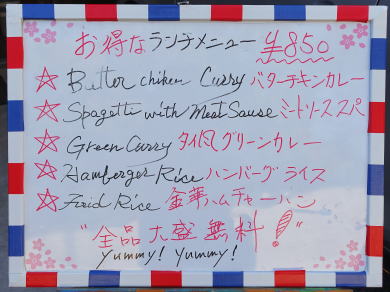 お得なランチメニュー ¥850
☆ Butter chiken Curry バターチキンカレー
☆ Spagetti with Meat Sause ミートソーススパ
☆ Green Curry タイ風グリーンカレー
☆ Hamberger Rice ハンバーグライス
☆ Fried Rice 金華ハムチャーハン
"全品大盛無料!"
yummy! yummy!